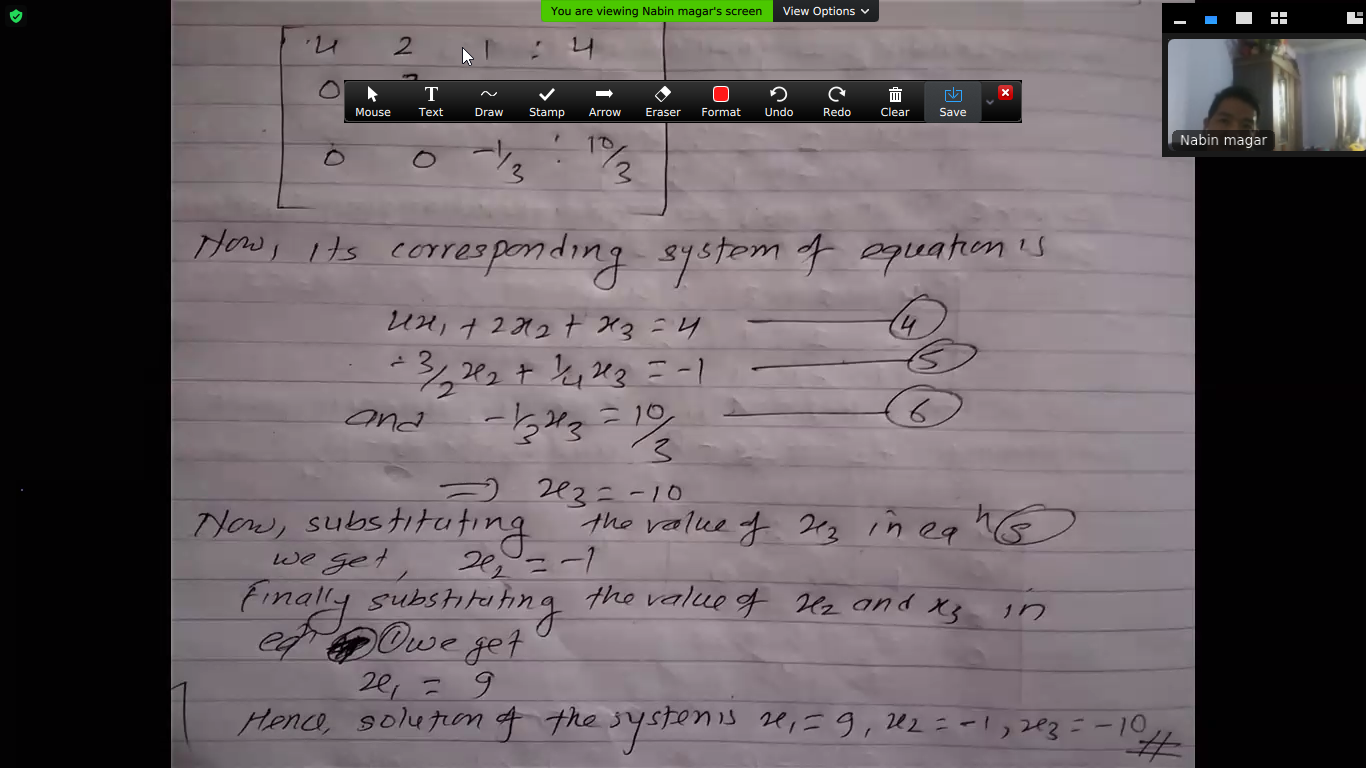 You are viewing Nabin magar's screen View Options
4 2 1 : 4
0
Mouse Text Draw Stamp Arrow Eraser Format Undo Redo Clear Save
Nabin magar
0 0 -1/3 : 10/3
Now, its corresponding system of equation is
4x₁ + 2x₂ + x₃ = 4 ④
-3/2 x₂ + 1/4 x₃ = -1 ⑤
and -1/3 x₃ = 10/3 ⑥
⇒ x₃ = -10
Now, substituting the value of x₃ in eqⁿ ⑤
we get, x₂ = -1
Finally substituting the value of x₂ and x₃ in
eqⁿ ① we get
x₁ = 9
Hence, solution of the system is x₁ = 9, x₂ = -1, x₃ = -10